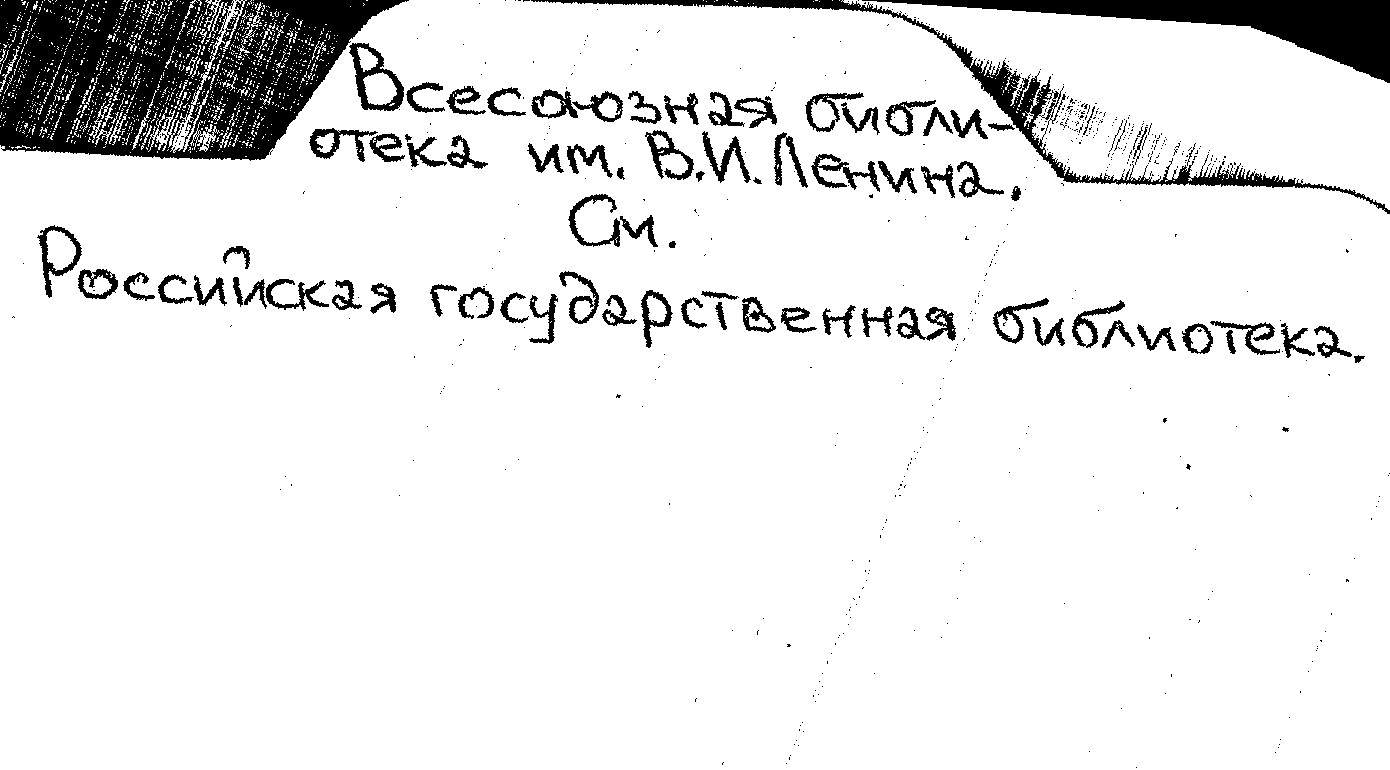 Всесоюзная библи-
отека им. В.И.Ленина.
См.
Российская государственная библиотека.